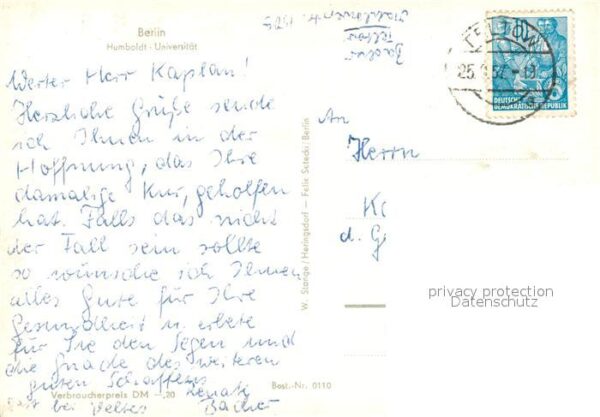 Berlin
Humboldt - Universität
Werter Herr Kaplan!
Herzliche Grüße sende
ich Ihnen in der
Hoffnung, das Ihre
damalige Kur, geholfen
hat. Falls das nicht
der Fall sein sollte
so wünsche ich Ihnen
alles Gute für Ihre
Gesundheit u. erbete
für Sie den Segen und
die Gnade des weiteren
guten Schaffens
Verbraucherpreis DM —,20
bei
Best.-Nr. 0110
W. Stange / Heringsdorf — Felix Setecki Berlin
TELTOW
25.
DEUTSCHE
DEMOKRATISCHE REPUBLIK
An
Herrn
K
d. G
privacy protection
Datenschutz